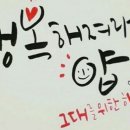 행복해져라
얍
그대를위한